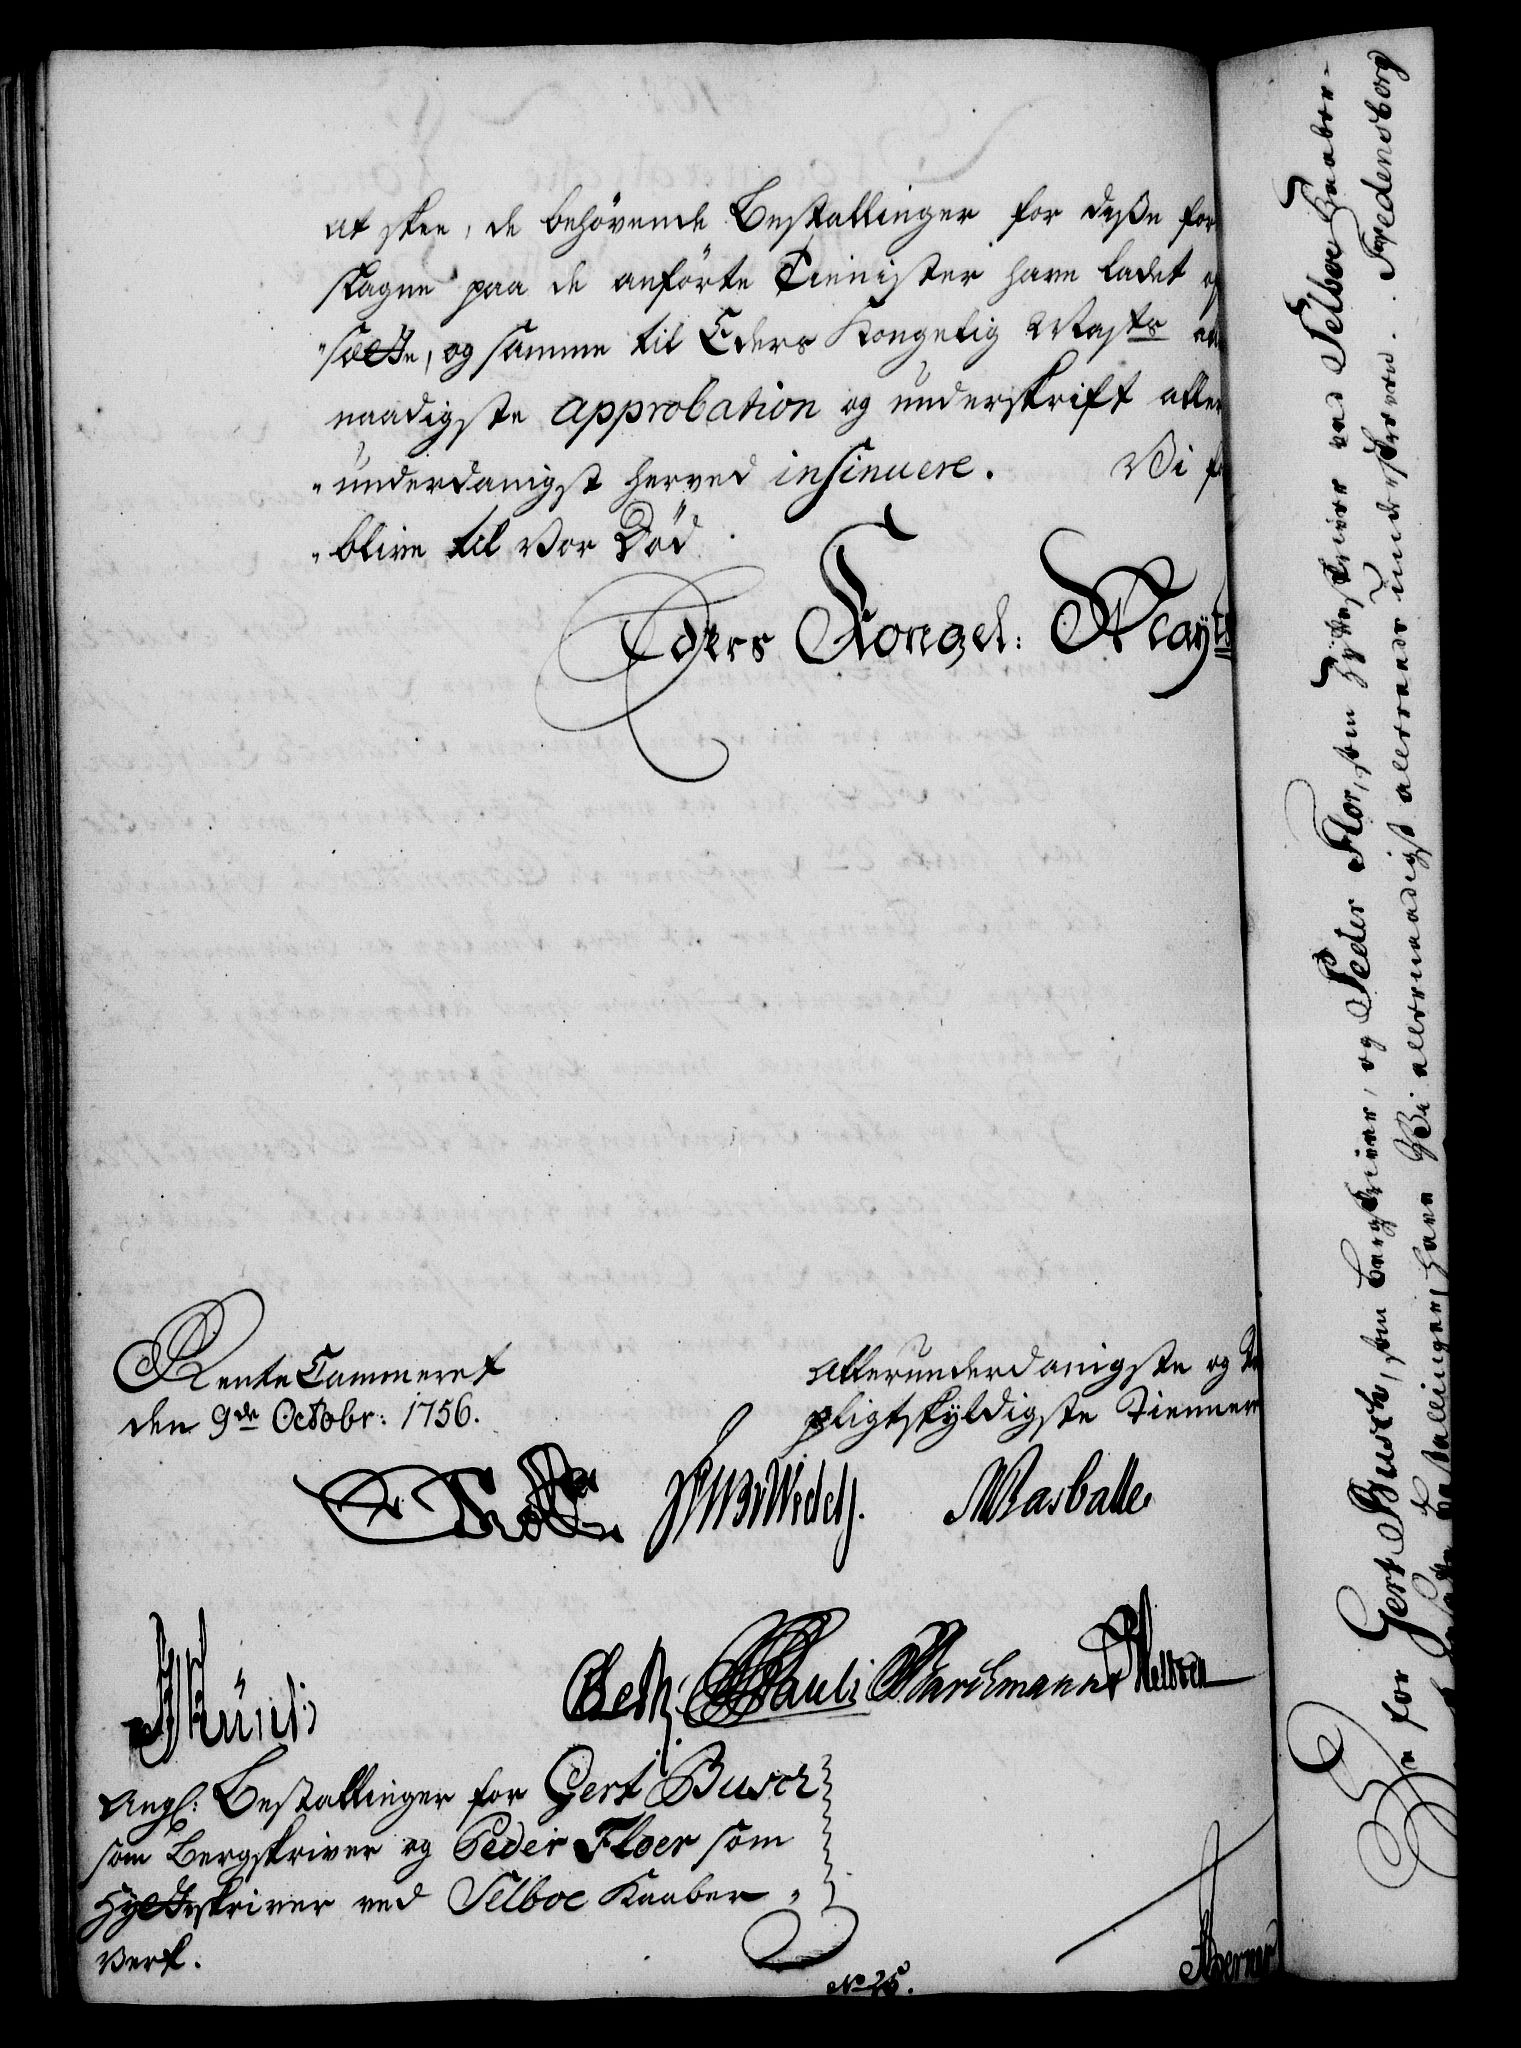 at skee, de behövende Bestallinger for deße for
slagne paa de anförte Tienister have ladet op
"sætte, og samme til Eders Kongelig Mayts aller
naadigste approbation og underskrift aller
"underdanigst herved insinuere. Vi
"blive til Vor Död.
Eders Kongel: Mayts
Rente Cammeret
den 9de Octobr: 1756.
Allerunderdanigste og
pligtskyldigste Tienner
Rasballe
Beth. Pauli Marchmann
Angl: Bestallinger for Gert Busch
som Bergskriver og Peder Floer som
Hytteskriver ved Selboe Kaaber
Verk.
No 25.
De for Gert Busch, som Bergskriver, og Peder Flor, som Hytteskriver ved Selboe Kaaber-
Bestallinger, have Vi allernaadigst allereede underskreven. Fredensborg